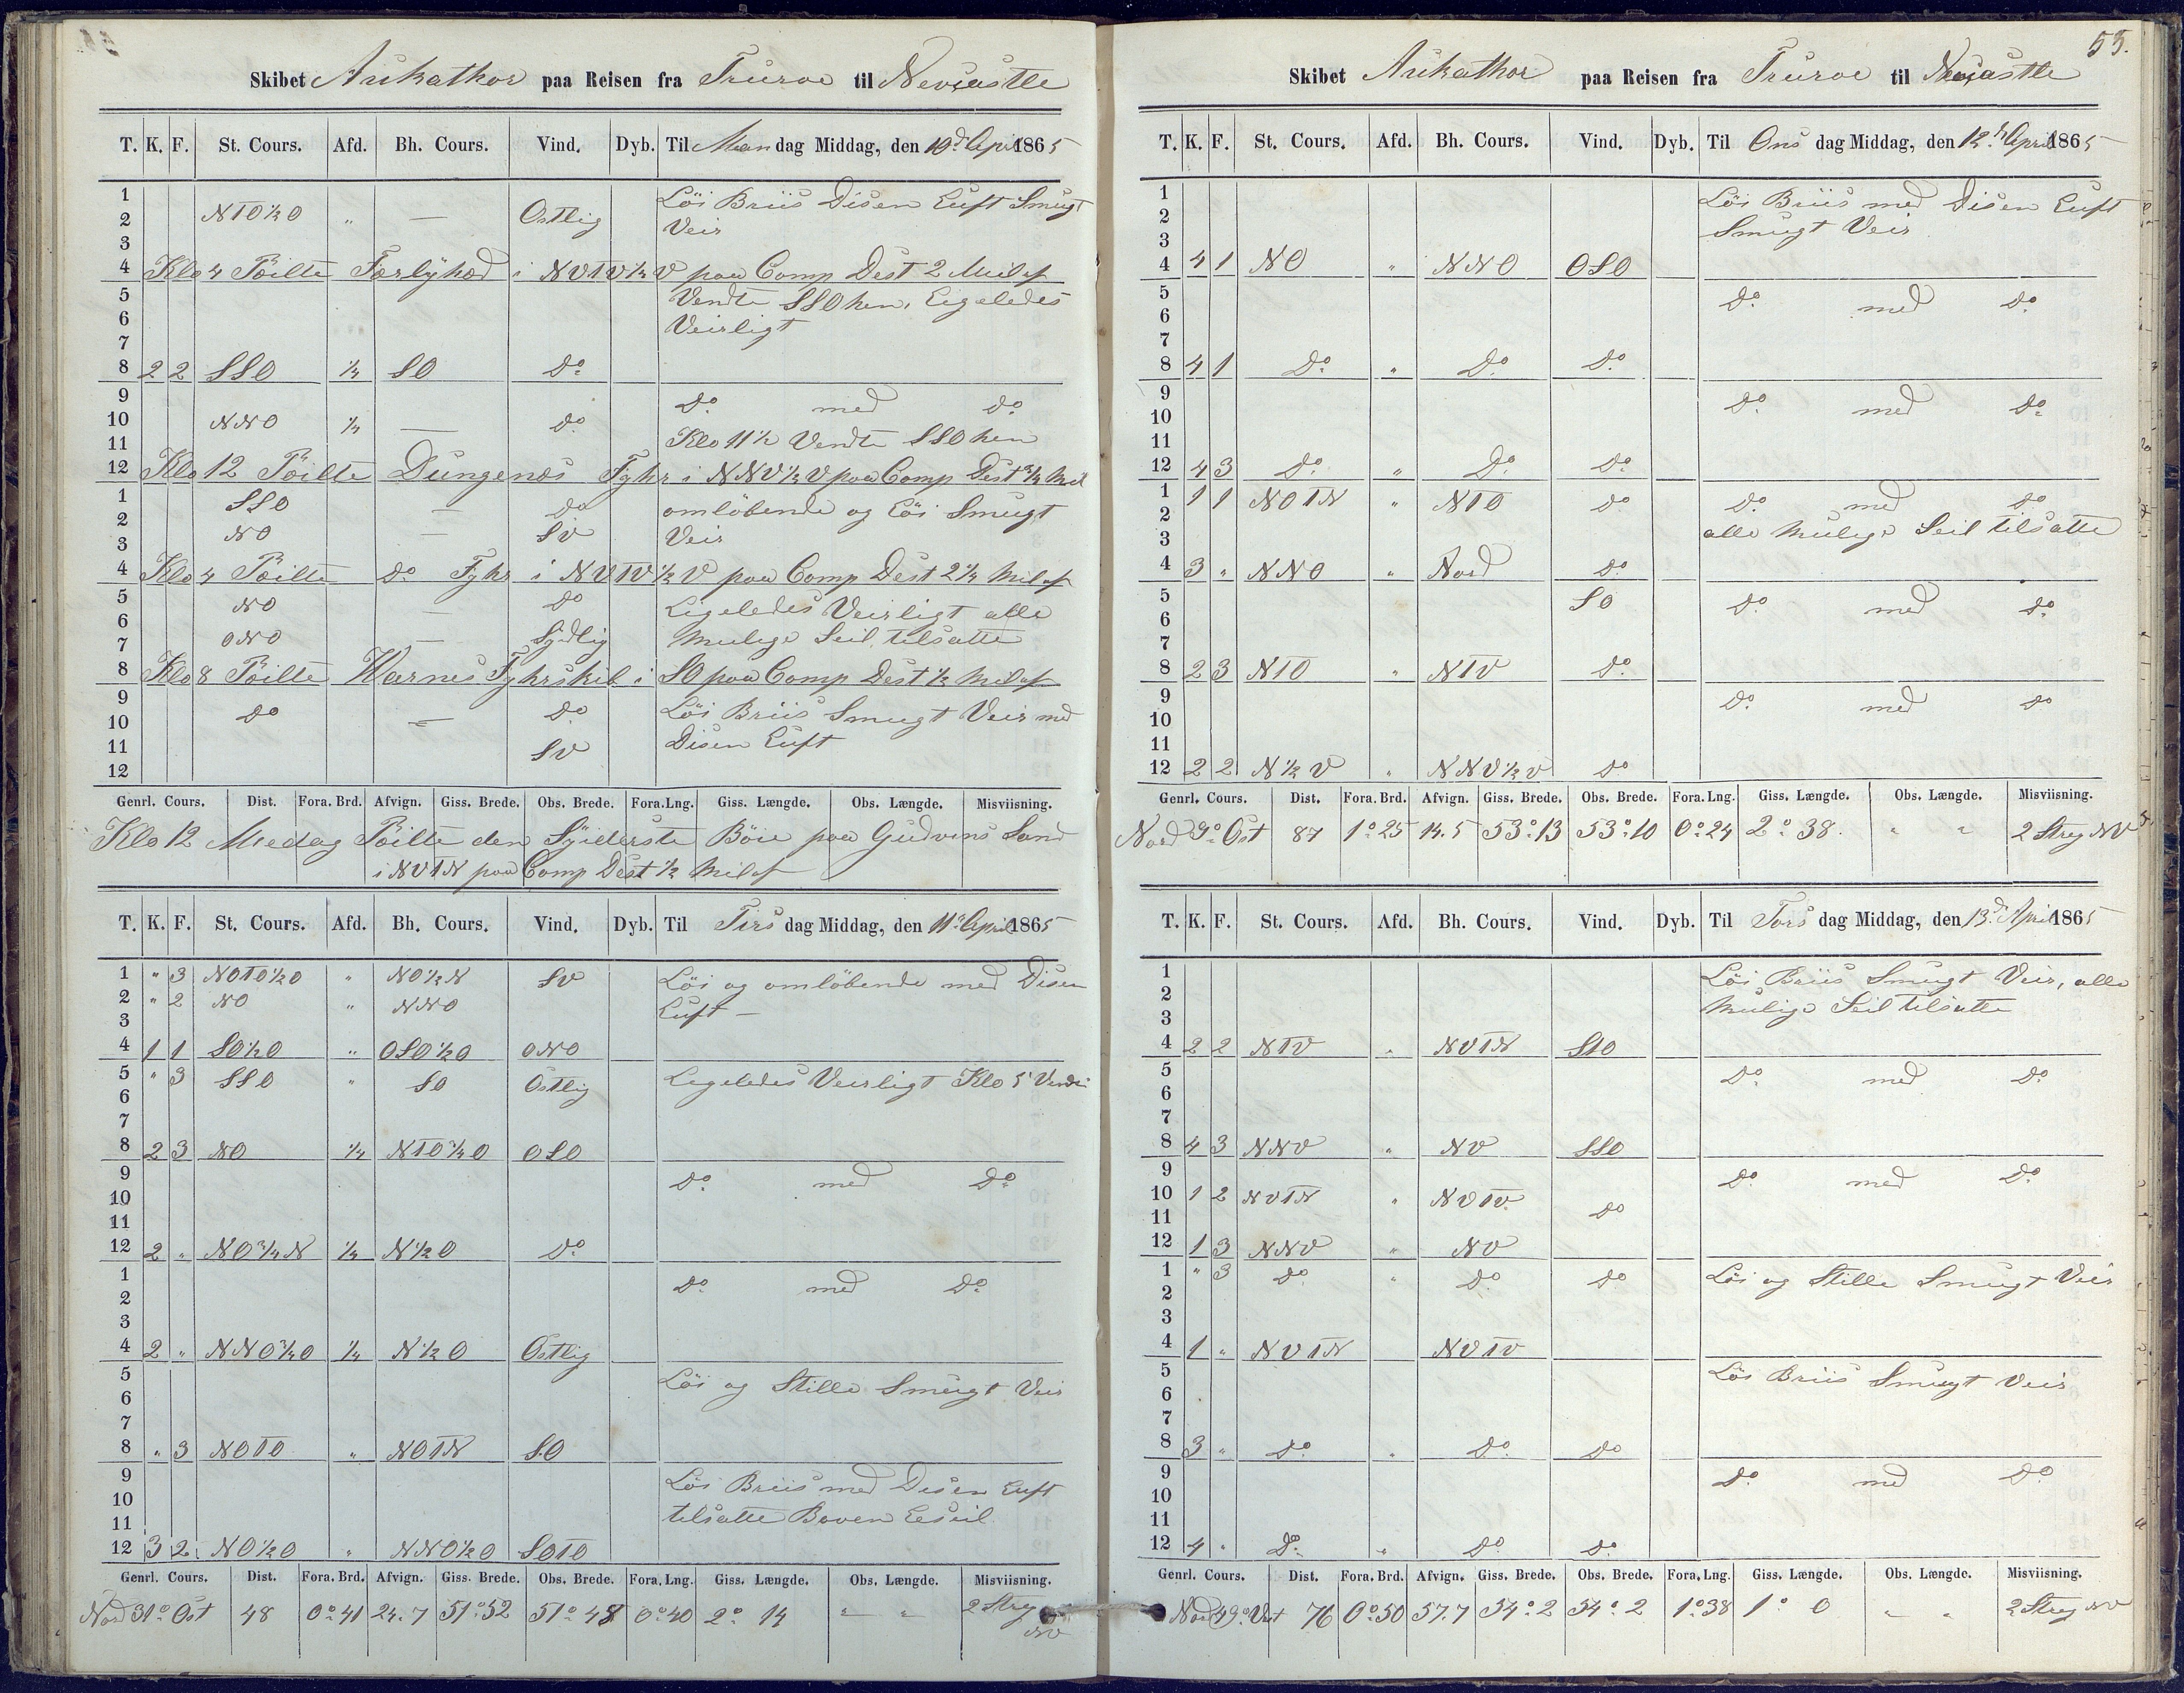 Skibet Aukathor paa Reisen fra Truroe til Newcastle
T. K. F. St. Cours. Afd. Bh. Cours. Vind. Dyb. Til Mandag Middag, den 10d April 1865
1 Löi Briis Disen Luft Smugt
2 NTO½O " — Ostlig Veir
3
4 Klo 4 Peilte Færlyhed i NVTV½V paa Comp Dest 2 Mil af
5 Vendte SSO hen, Ligeledes
6 Veirligt
7
8 2 2 SSO ¼ SO Do
9 Do med Do
10 NNO ¼ — Do
11 Klo 11½ Vendte SSO hen
12 Klo 12 Peilte Dungenes Fyhr i NNV½V paa Comp Dest ¾ Mil
1 SSO — Do omlöbende og Löi Smugt
2 NO — SV Veir
3
4 Klo 4 Peilte Do Fyhr i NVTV½V paa Comp Dest 2¼ Mil af
5 NO — Do Ligeledes Veirligt alle
6 ONO — Sydlig mulige Seil tilsatte
7
8 Klo 8 Peilte Warnes Fyhrskib i SO paa Comp Dest ½ Mil af
9 Do — Do Löi Briis Smugt Veir med
10 SV Disen Luft
11
12
Genrl. Cours. Dist. Fora. Brd. Afvign. Giss. Brede. Obs. Brede. Fora. Lng. Giss. Længde. Obs. Længde. Misviisning.
Klo 12 Medag Peilte den Syderste Böie paa Gudvins Sand
i NVTN paa Comp Dest ½ Mil af
T. K. F. St. Cours. Afd. Bh. Cours. Vind. Dyb. Til Tirsdag Middag, den 11d April 1865
1 " 3 NOTO½O " NO½N SV Löi og omlöbende med Disen
2 " 2 NO " NNO Luft —
3
4 1 1 SO½O " OSO½O ONO
5 " 3 SSO " SO Ostlig Ligeledes Veirligt Klo 5 Vendte
6
7
8 2 3 NO ¼ NTO¼O OSO
9 Do med Do
10
11
12 2 " NO¾N ¼ N½O Do
1 Do med Do
2
3
4 2 " NNO¾O ¼ N½O Ostlig
5 Löi og Stille Smugt Veir
6
7
8 " 3 NOTO " NOTN SO
9 Löi Briis med Disen Luft
10 tilsatte Boven Leseil
11
12 3 2 NO½O " NNO½O SOTO
Genrl. Cours. Dist. Fora. Brd. Afvign. Giss. Brede. Obs. Brede. Fora. Lng. Giss. Længde. Obs. Længde. Misviisning.
Nord 31° Ost 48 0°41 24.7 51°52 51°48 0°40 2° 14 " " 2 Streg NV
55.
Skibet Aukathor paa Reisen fra Truroe til Newcastle
T. K. F. St. Cours. Afd. Bh. Cours. Vind. Dyb. Til Onsdag Middag, den 12te April 1865
1 Löi Briis med Disen Luft
2 Smugt Veir
3
4 4 1 NO " NNO OSO
5 Do med Do
6
7
8 4 1 Do " Do Do
9 Do med Do
10
11
12 4 3 Do " Do Do
1 1 1 NOTN " NTO Do Do med Do
2 alle Mulige Seil tilsatte
3
4 3 " NNO " Nord Do
5 SO Do med Do
6
7
8 2 3 NTO " NTV Do
9 Do med Do
10
11
12 2 2 N½V " NNV½V Do
Genrl. Cours. Dist. Fora. Brd. Afvign. Giss. Brede. Obs. Brede. Fora. Lng. Giss. Længde. Obs. Længde. Misviisning.
Nord 9° Ost 87 1°25 14.5 53°13 53°10 0°24 2° 38 " " 2 Streg NV
T. K. F. St. Cours. Afd. Bh. Cours. Vind. Dyb. Til Torsdag Middag, den 13d April 1865
1 Löi Briis Smugt Veir, alle
2 Mulige Seil tilsatte
3
4 2 2 NTV " NVTN STO
5 Do med Do
6
7
8 4 3 NNV " NV SSO
9 Do med Do
10 1 2 NVTN " NVTV Do
11
12 1 3 NNV " NV
1 " 3 Do " Do Do Löi og Stille Smugt Veir
2
3
4 1 " NVTN NVTV
5 Löi Briis Smugt Veir
6
7
8 3 " Do " Do Do
9 Do med Do
10
11
12 4 " Do " Do Do
Genrl. Cours. Dist. Fora. Brd. Afvign. Giss. Brede. Obs. Brede. Fora. Lng. Giss. Længde. Obs. Længde. Misviisning.
Nord 49° Vest 76 0°50 57.7 54°2 54°2 1°38 1° 0 " " 2 Streg NV